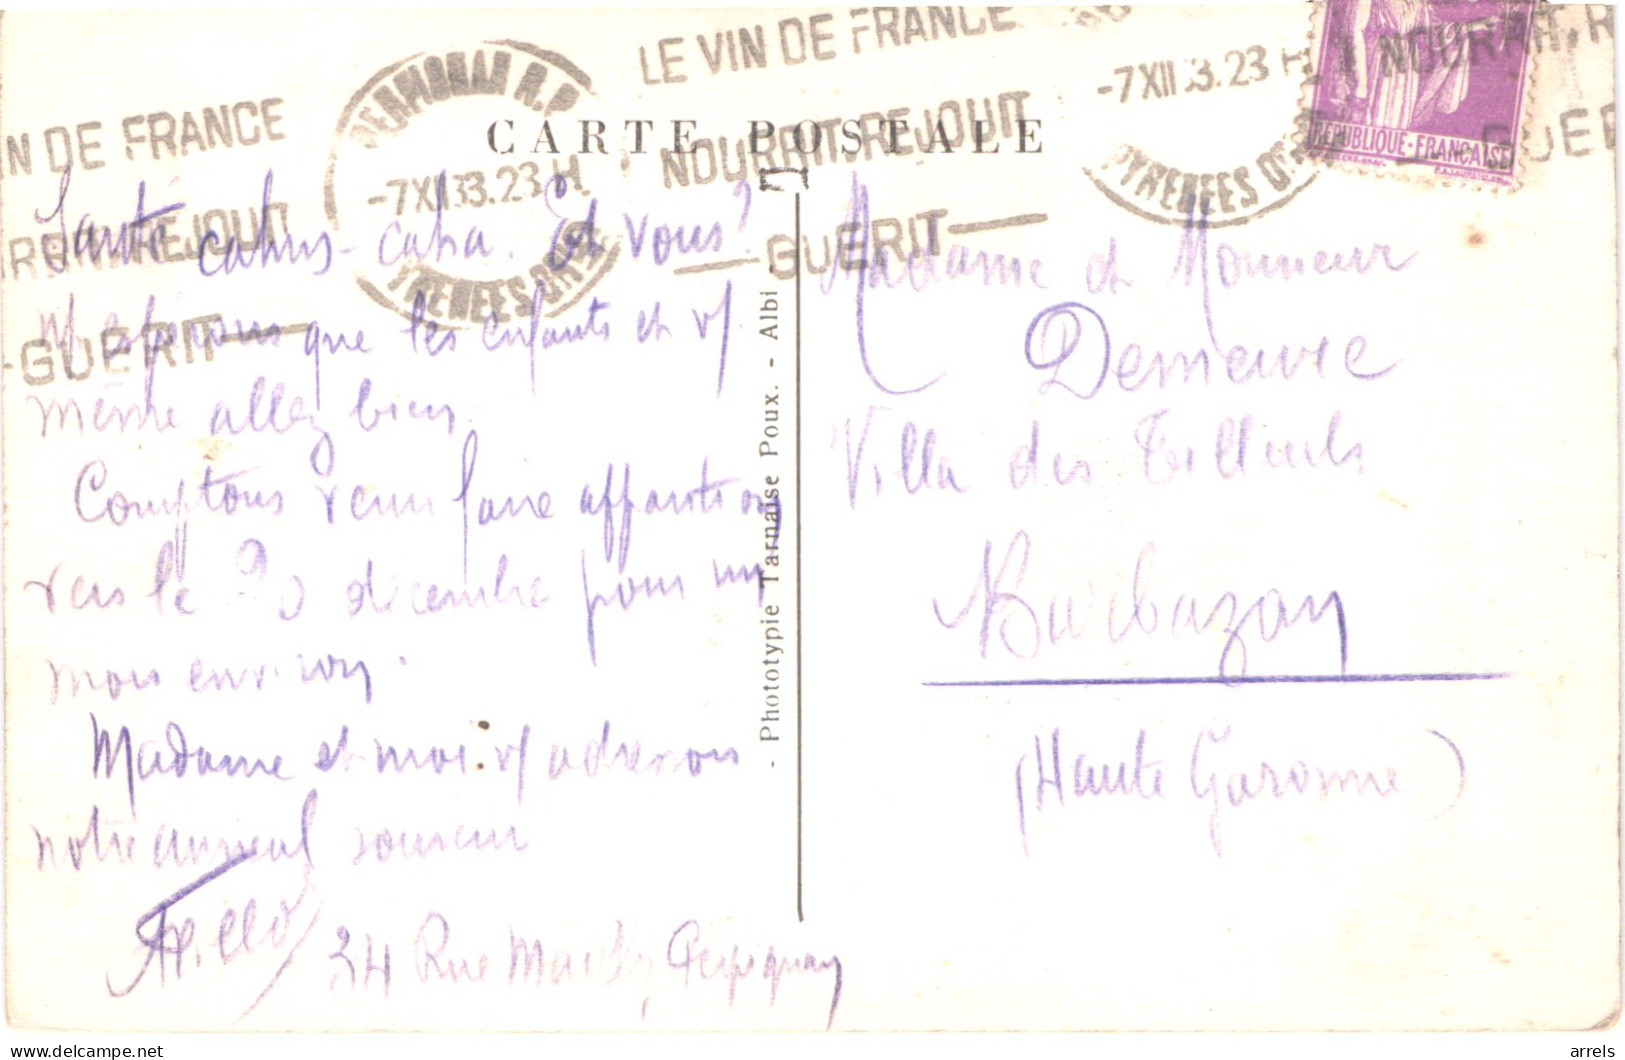 LE VIN DE FRANCE
NOURRIT.REJOUIT
GUERIT
PERPIGNAN R.P.
-7 XII 33.23 H
PYRENEES ORles
IN DE FRANCE
REJOUIT
GUERIT
-7 XII 33.23 H
PYRENEES OR
NOURRIT.R
GUER
REPUBLIQUE-FRANÇAISE
CARTE POSTALE
Santé cahus-caha. Et vous?
N/ espérons que les enfants et v/
même allez bien.
Comptons venir faire apparition
vers le 20 décembre pour un
mois environ.
Madame et moi v/ adressons
notre amical souvenir
34 Rue Mailly Perpignan
- Phototypie Tarnaise Poux. - Albi -
Madame et Monsieur
Demeure
Villa des Tilleuls
Barbazan
(Haute Garonne)
arrels
delcampe.net